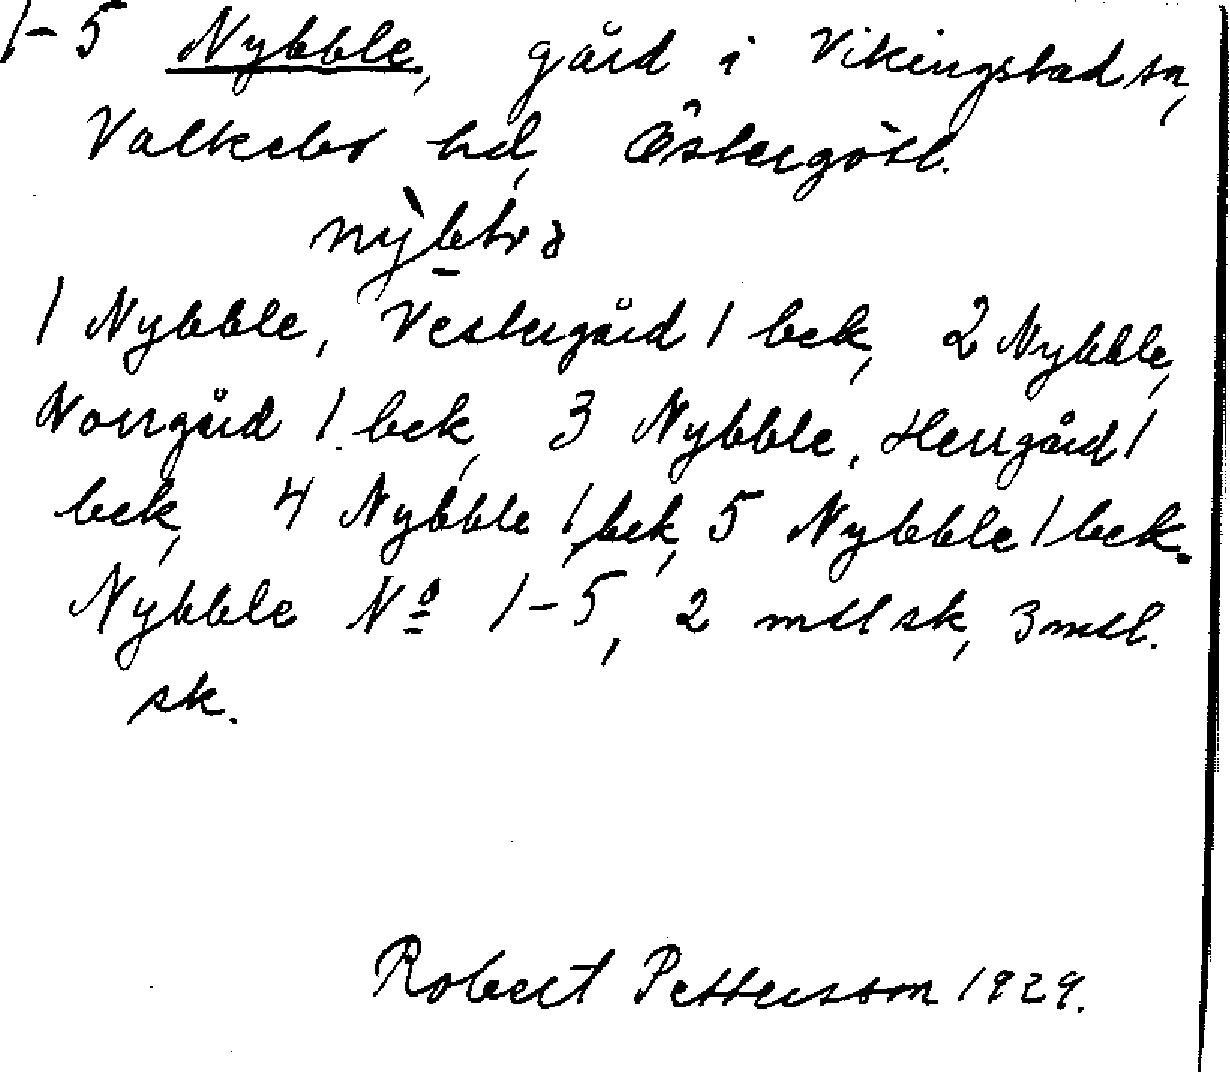 1-5 Nybble, gård i Vikingstad sn,
Valkebo hd, Östergötl.
1 Nybble, Vestergård 1 bek, 2 Nybble,
Norrgård 1 bek, 3 Nybble, Herrgård 1
bek, 4 Nybble 1 bek, 5 Nybble 1 bek.
Nybble Nº 1-5, 2 mtl sk, 3 mtl.
sk.
Robert Pettersson 1929.